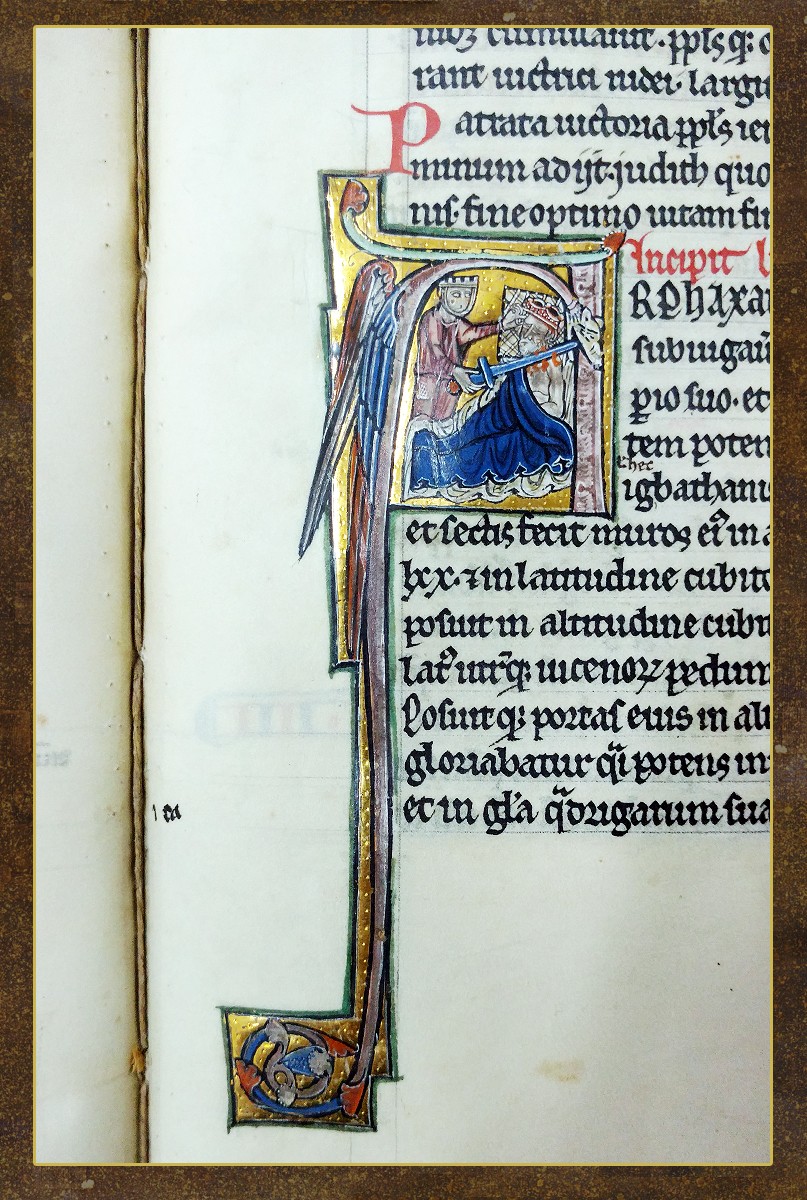 rant uictrici fidei. largi
Patrata uictoria ppl's ier
minum ad ijt. judith quo
nis. fine optimo uitam fin
Incipit l
RPhAXA
subiugau
pio suo. et
tem poten
igbathanis
et sectis fecit muros ei' in a
lxx. ⁊ in latitudine cubito
posuit in altitudine cubi
lat' utrq; uicenoꝝ pedum
Posuit q; portas eius in alt
gloriabatur q̃i potens in
et in gl'a q̃drigarum sua